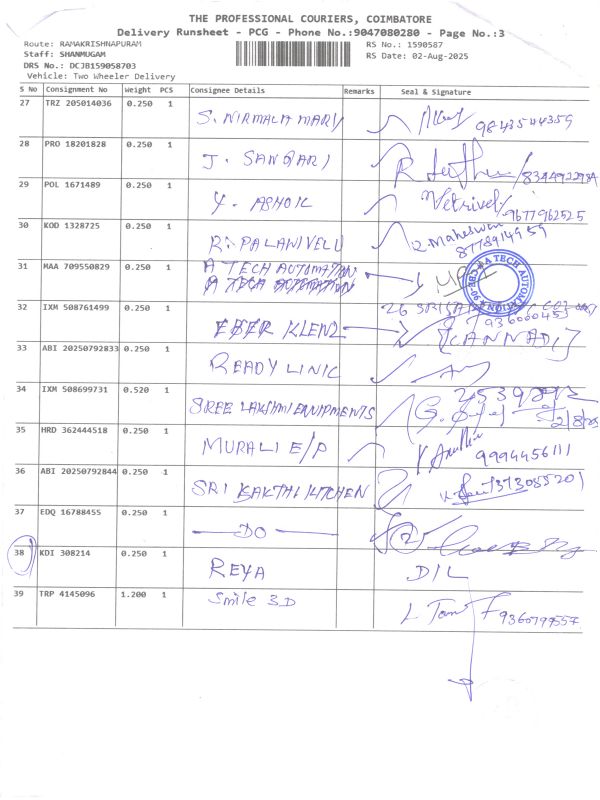 THE PROFESSIONAL COURIERS, COIMBATORE
Delivery Runsheet - PCG - Phone No.:9047080280 - Page No.:3
Route: RAMAKRISHNAPURAM RS No.: 1590587
Staff: SHANMUGAM RS Date: 02-Aug-2025
DRS No.: DCJB159058703
Vehicle: Two Wheeler Delivery
S No Consignment No Weight PCS Consignee Details Remarks Seal & Signature
27 TRZ 205014036 0.250 1 S. NIRMALA MARY 9843544359
28 PRO 18201828 0.250 1 J. SANDARI
29 POL 1671489 0.250 1 Y. ASHOK Vetrivel 9677962525
30 KOD 1328725 0.250 1 R. PALANIVELU R. Maheswari 8778914959
31 MAA 709550829 0.250 1 A TECH AUTOMATION
A TECH AUTOMATION
A TECH AUTOMATION
32 IXM 508761499 0.250 1 EBER KLENZ
33 ABI 20250792833 0.250 1 READY LINIC
34 IXM 508699731 0.520 1 SREE LAKSHMI ENNIPMENTS 2/8/25
35 HRD 362444518 1 0.250 MURALI E/P 9994456111
36 ABI 20250792844 0.250 1 SRI SAKTHI KITCHEN
37 EDQ 16788455 0.250 1 DO
38 KDI 308214 0.250 1 REYA D/L
39 TRP 4145096 1.200 1 Smile 3D 9360799557